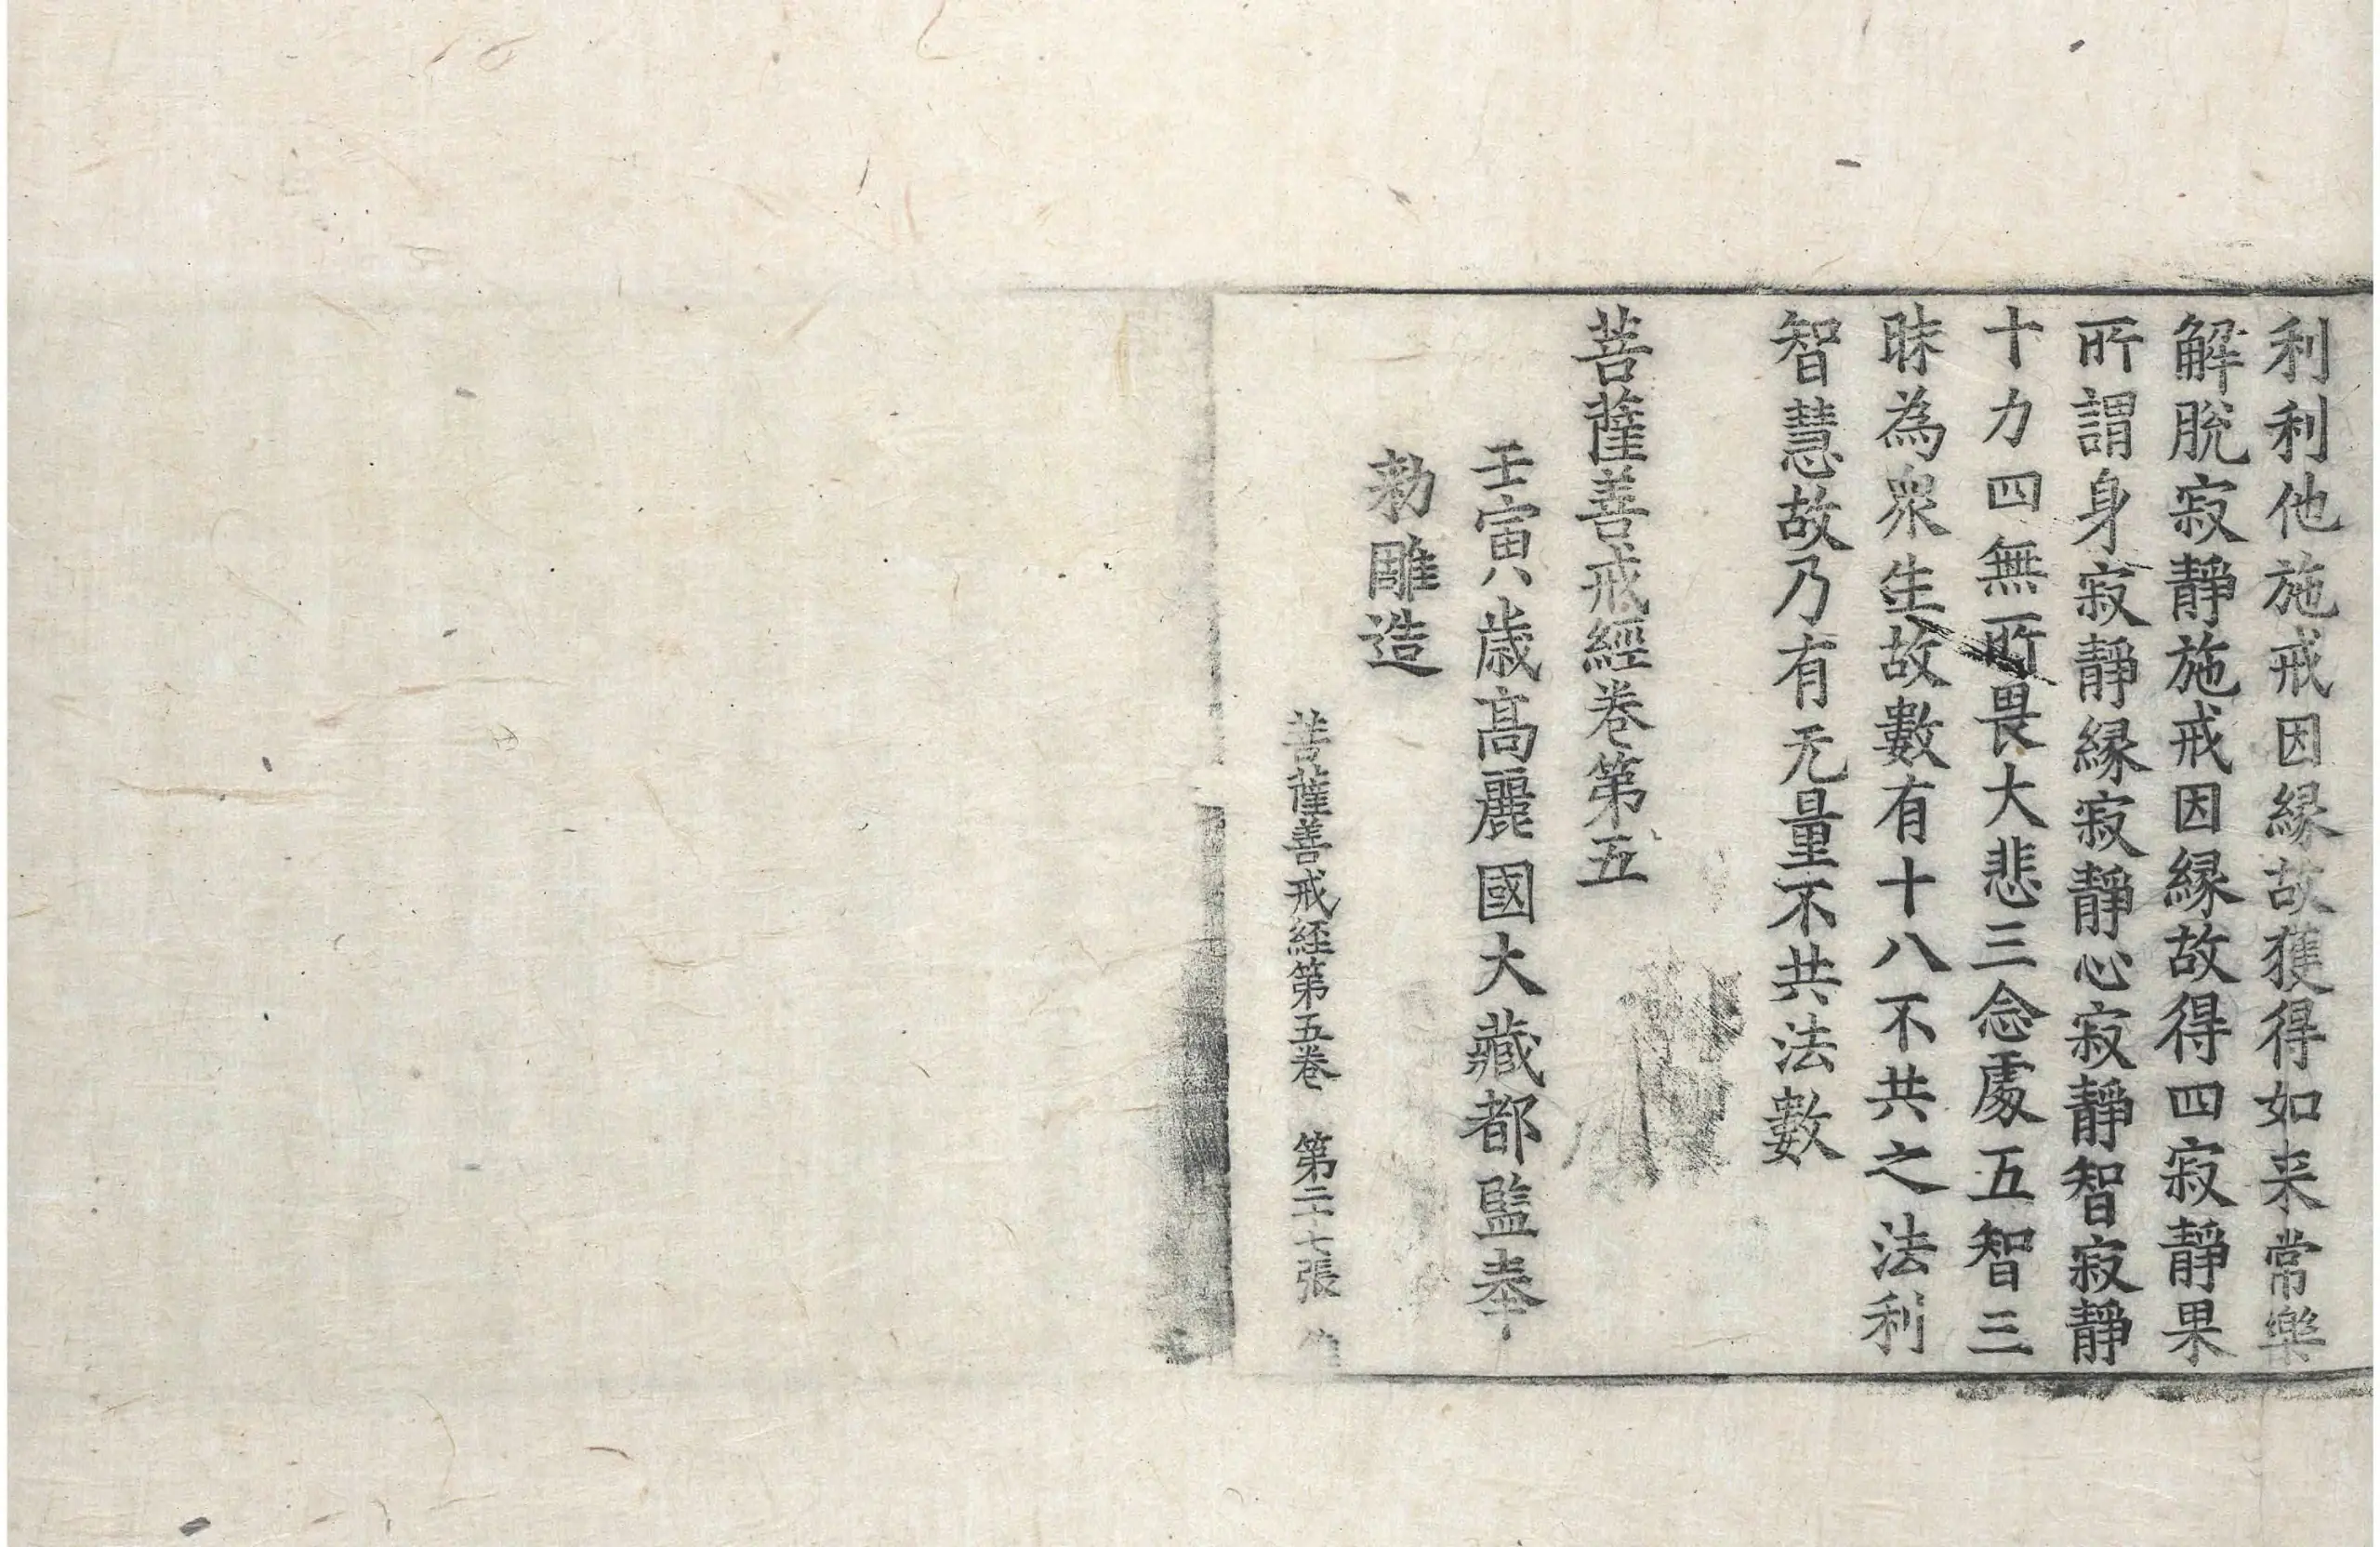 利利他施戒因縁故獲得如来常樂
解脫寂靜施戒因縁故得四寂靜果
所謂身寂靜縁寂靜心寂靜智寂靜
十力四無所畏大悲三念處五智三
昧為衆生故數有十八不共之法利
智慧故乃有无量不共法數
菩薩善戒經卷第五
壬寅歳髙麗國大藏都監奉
勅雕造
菩薩善戒経第五卷 第二十七張